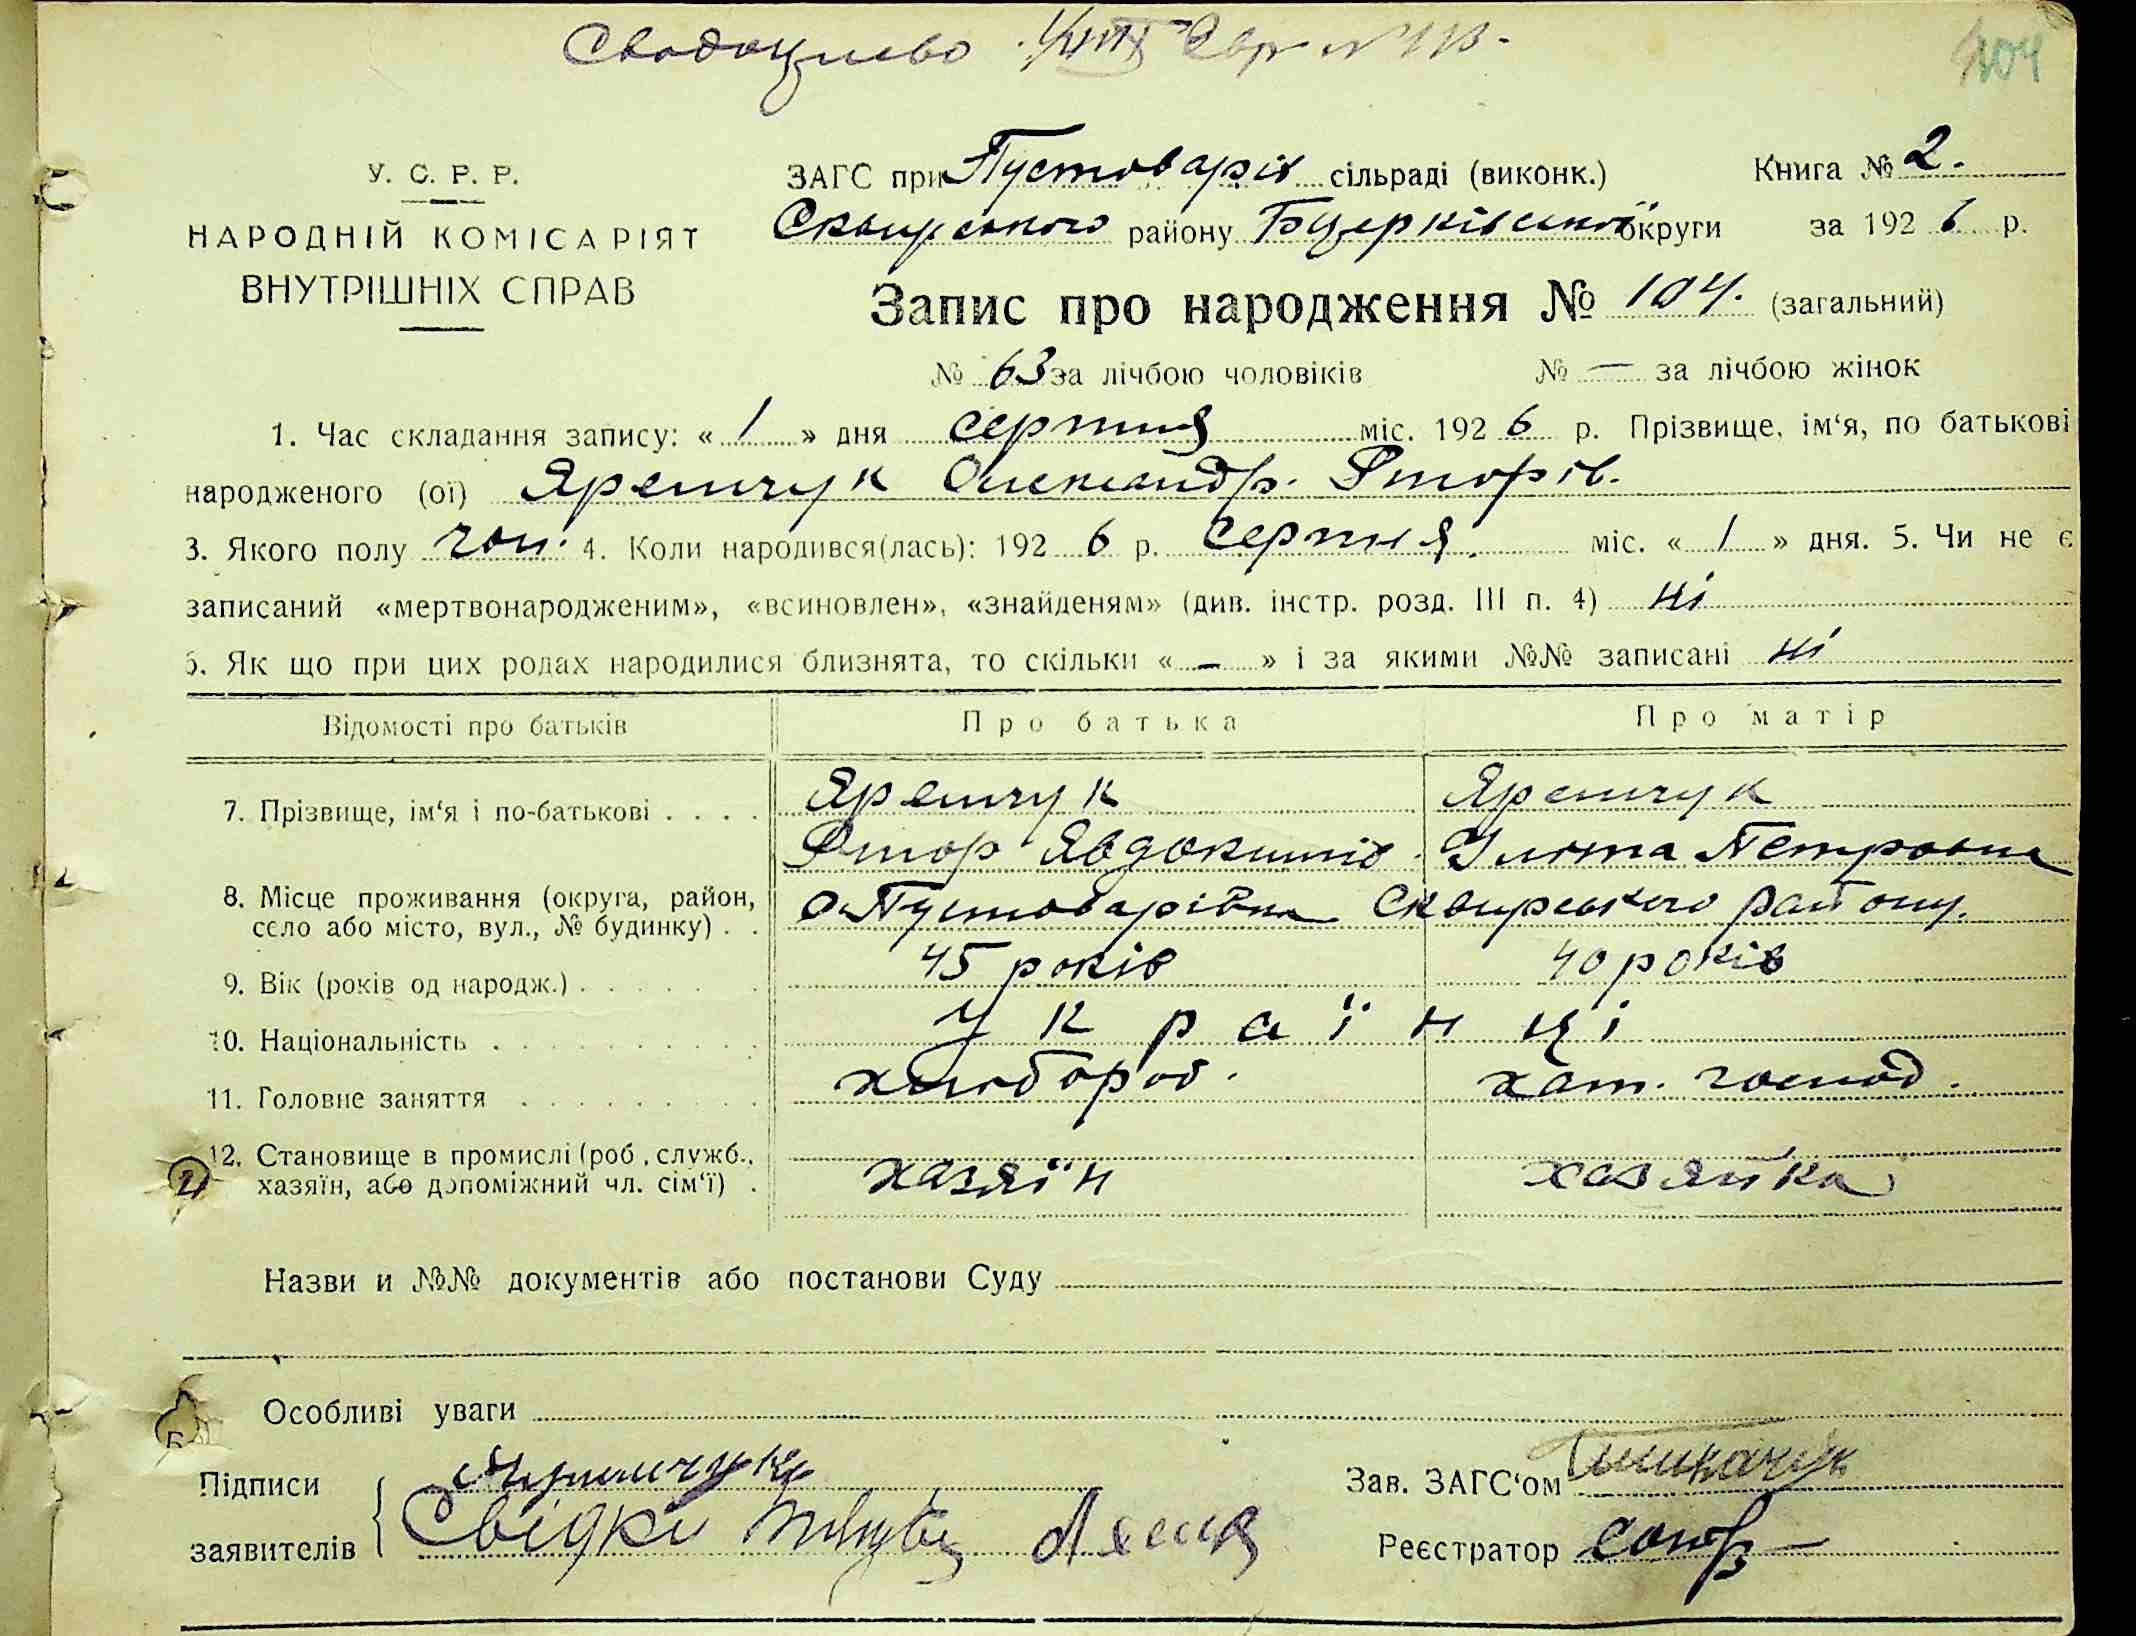 404
У. С. Р. Р.
НАРОДНІЙ КОМІСАРІЯТ
ВНУТРІШНІХ СПРАВ
ЗАГС при Пустоварів сільраді (виконк.)
Книга № 2.
Сквирського району Бцерківської округи за 1926 р.
Запис про народження № 104. (загальний)
№ 63 за лічбою чоловіків № — за лічбою жінок
1. Час складання запису: «1» дня серпня міс. 1926 р. Прізвище, ім‘я, по батькові
народженого (ої) Яремчук Олександр. Фторів.
3. Якого полу чол. 4. Коли народився(лась): 1926 р. серпня. міс. «1» дня. 5. Чи не є
записаний «мертвонародженим», «всиновлен», «знайденям» (див. інстр. розд. III п. 4) ні
6. Як що при цих родах народилися близнята, то скільки «–» і за якими №№ записані ні
Відомості про батьків Про батька Про матір
7. Прізвище, ім‘я і по-батькові . . . . Яремчук Яремчук
Фтор Явдокимів Улита Петровна
8. Місце проживання (округа, район,
село або місто, вул., № будинку) . . с. Пустоварівка Сквирського району.
9. Вік (років од народж.) . . . . . 45 років 40 років
10. Національність . . . . . . . . . . українці
11. Головне заняття . . . . . . . . . хлібороб. хат. господ.
12. Становище в промислі (роб., служб.,
хазяїн, або допоміжний чл. сім‘ї) . хазяїн хазяйка
Назви и №№ документів або постанови Суду
Особливі уваги
Підписи
заявителів
Свідки
Зав. ЗАГС‘ом
Реєстратор